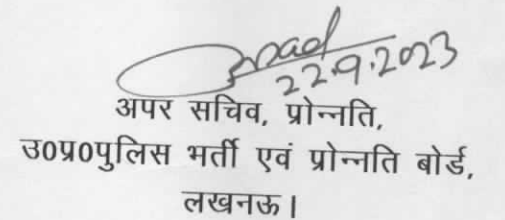 22.9.2023
अपर सचिव, प्रोन्नति,
उ०प्र०पुलिस भर्ती एवं प्रोन्नति बोर्ड,
लखनऊ।